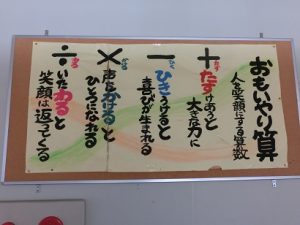 おもいやり算
人を笑顔にする算数
+
たす
たすけあうと
大きな力に
−
ひく
ひきうけると
喜びが生まれる
×
かける
声をかけると
ひとつになれる
÷
わる
いたわると
笑顔は返ってくる